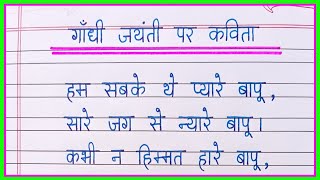 गाँधी जयंती पर कविता
हम सबके थे प्यारे बापू,
सारे जग से न्यारे बापू।
कभी न हिम्मत हारे बापू,